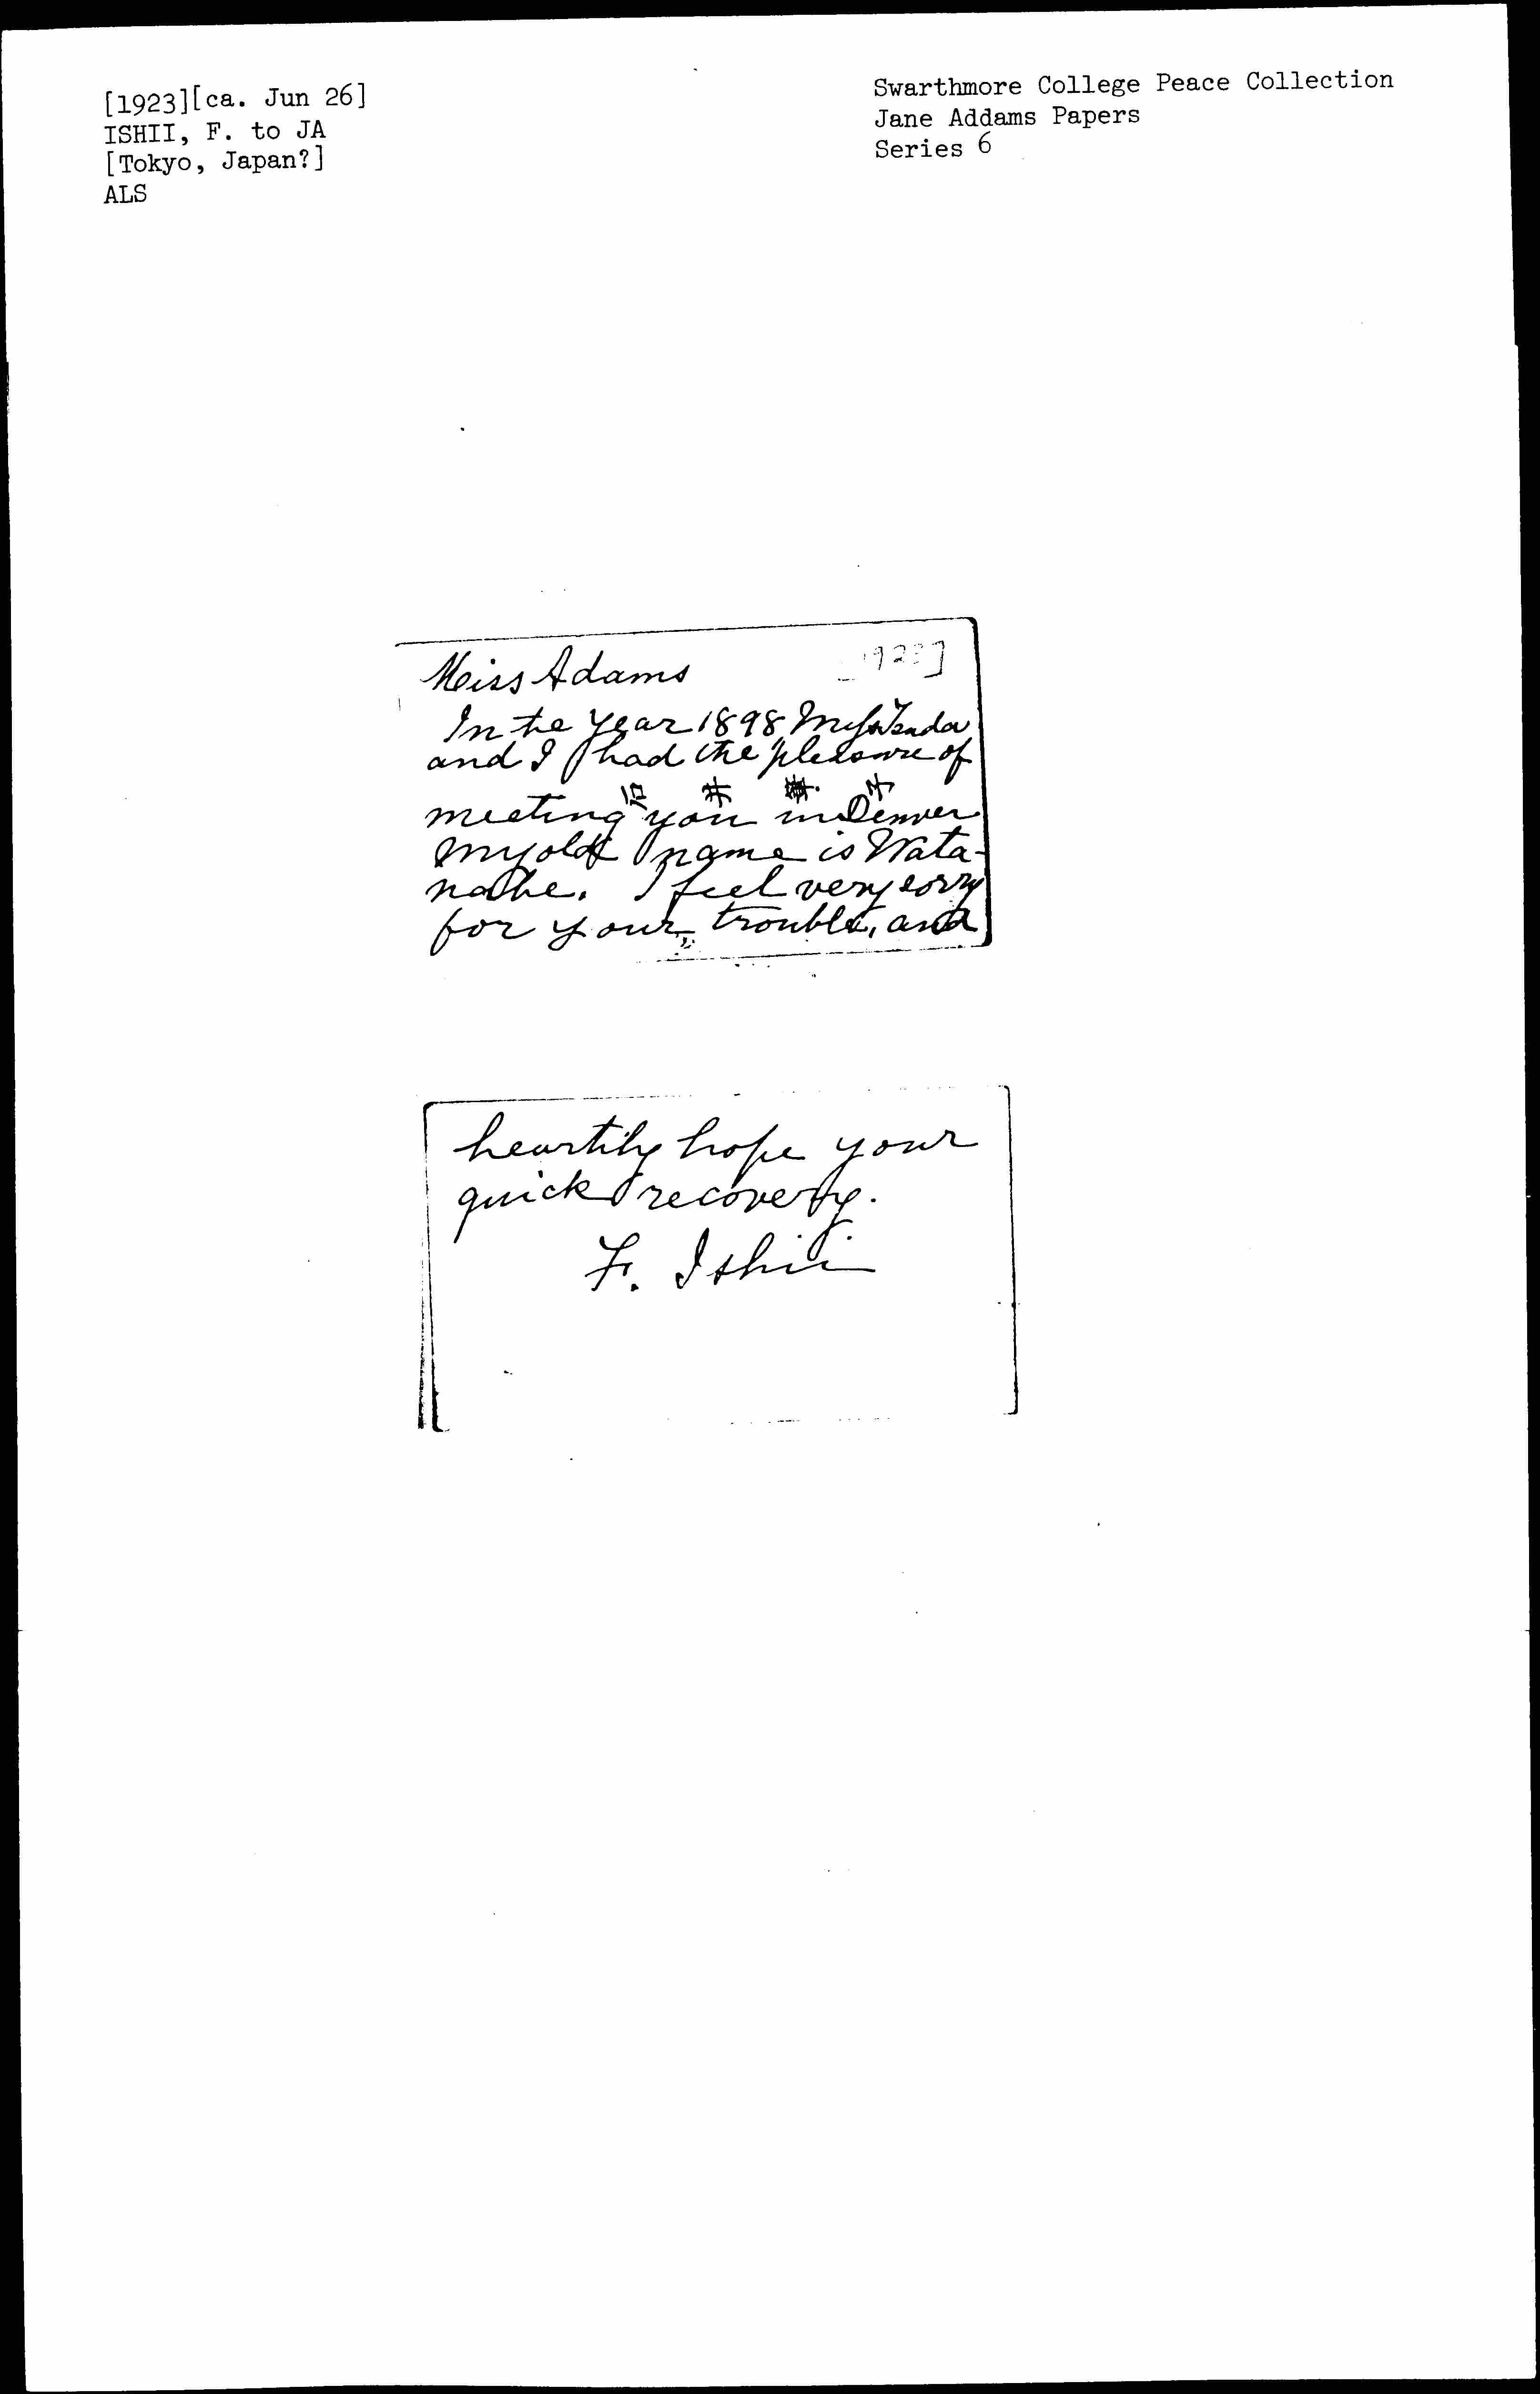 [1923][ca. Jun 26]
ISHII, F. to JA
[Tokyo, Japan?]
ALS
Swarthmore College Peace Collection
Jane Addams Papers
Series 6
Miss Adams
In the year 1898, Miss Tsuda
and I had the pleasure of
石 井 筆 子
meeting you in Denver
my old name is Wata-
nabe. I feel very sorry
for your trouble, and
heartily hope your
quick recovery.
F. Ishii